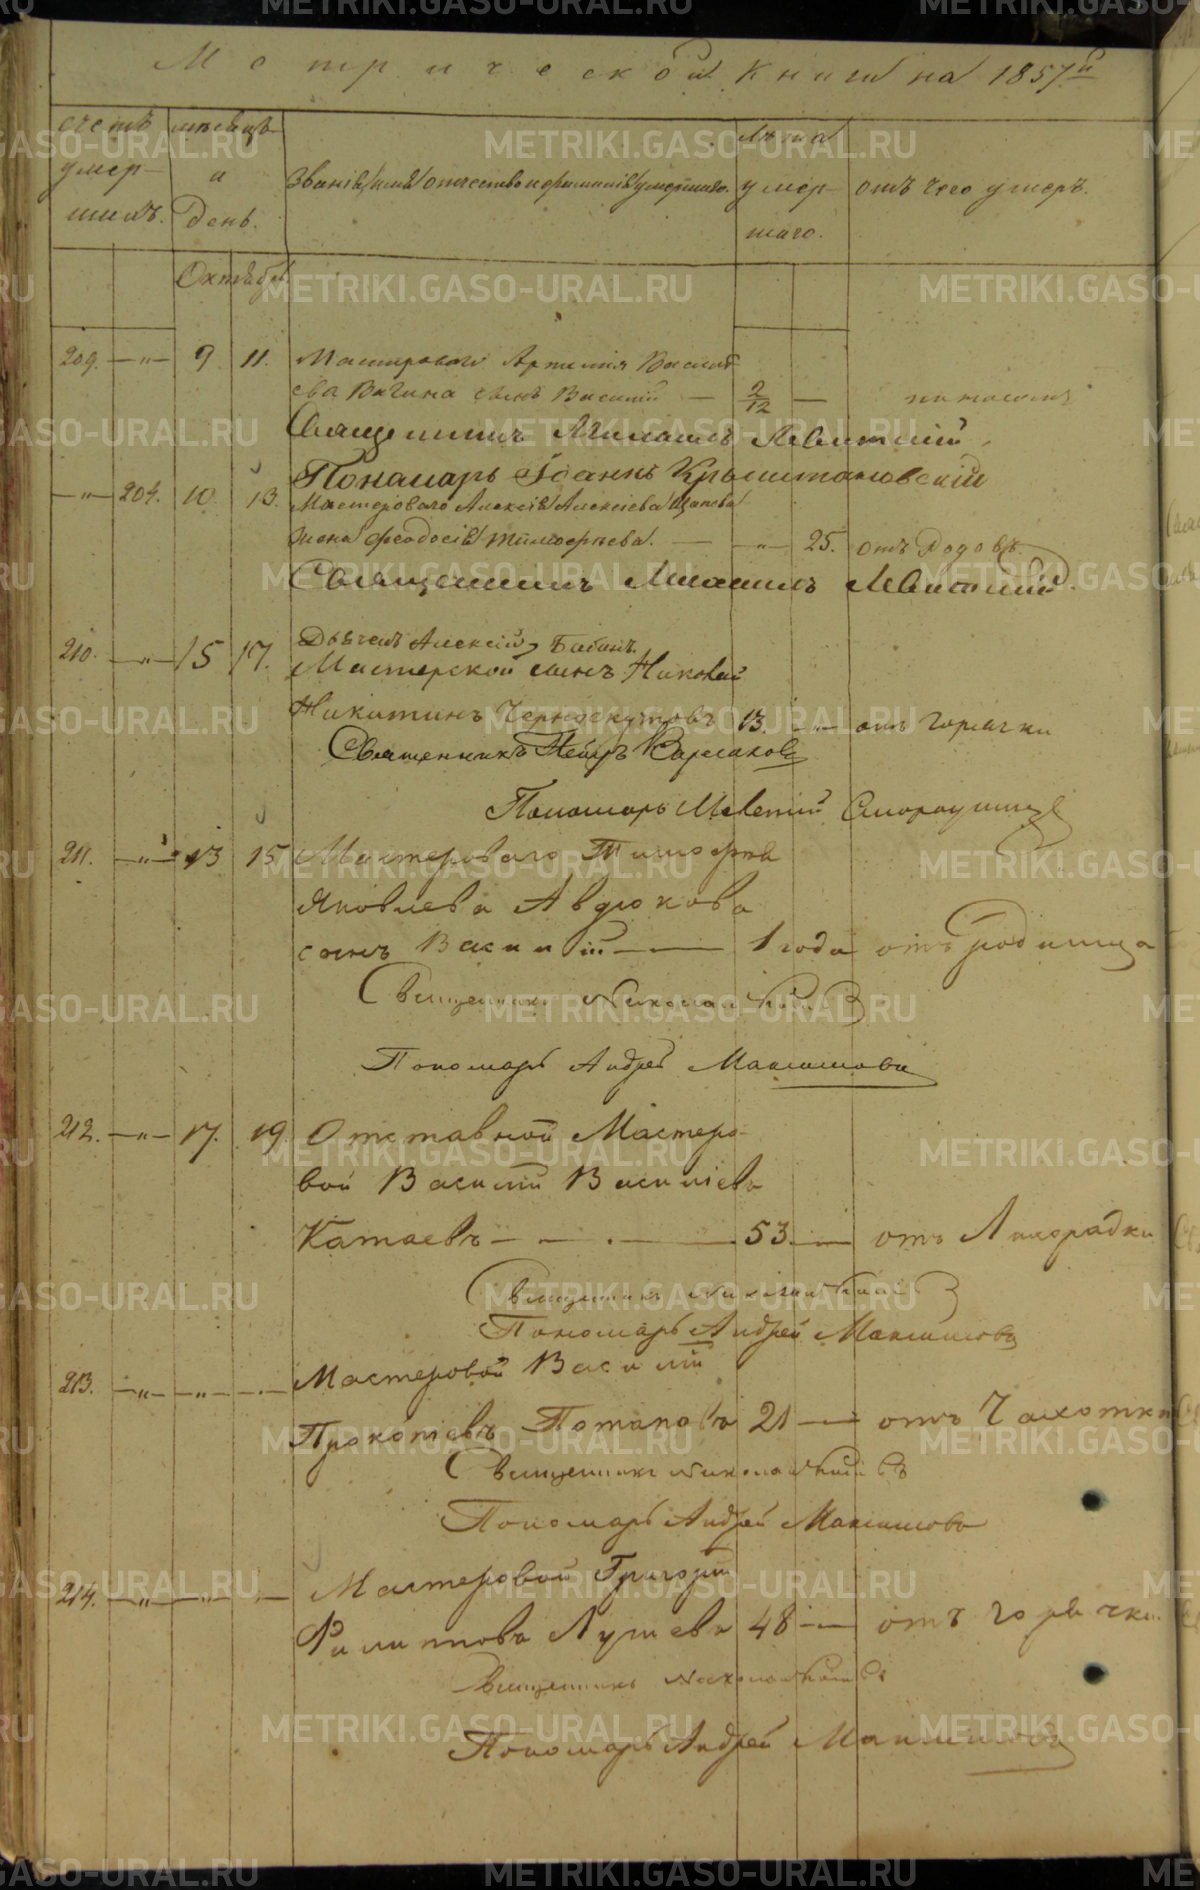 Метрической книги на 1857й
счетъ умер-шихъ.
мѣсяцъ и день.
Званіе, имя, отчество и фамилія умершаго.
Лѣта умер-шаго.
отъ чего умеръ.
Октябрь
209. —"— 9 11. Мастероваго Артемія Василь-
ева Вагина сынъ Василій — 2/12 —
Священникъ Михаилъ Левитскій
Пономарь Іоаннъ
—"— 204. 10 13. Мастероваго Алексія Алексіева
жена Феодосія Тимофеева. — —"— 25. отъ Родовъ.
Священникъ Михаилъ Левитскій.
Дьячекъ Алексій Бабинъ.
210. —"— 15 17. Мастерской сынъ Николай
Никитинъ Черноскутовъ 13. —"— отъ горячки
Священникъ Петръ
Пономарь
211. —"— 13 15 Мастероваго Тимофея
Яковлева Авдюкова
сынъ Василій — 1 года отъ родимца
Священникъ Николай
Пономарь Андрей Максимовъ
212. —"— 17. 19. Отставной Мастеро-
вой Василій Василіевъ
Катаевъ — — 53. — отъ Лихорадки
Священникъ Николай
Пономарь Андрей Максимовъ
213. —"— —"— — Мастеровой Василій
Прокопіевъ Потаповъ 21 — отъ Чахотки
Священникъ Николай
Пономарь Андрей Максимовъ
214. —"— —"— — Мастеровой Григорій
Филипповъ 48 — отъ горячки.
Священникъ Николай
Пономарь Андрей Максимовъ
METRIKI.GASO-URAL.RU